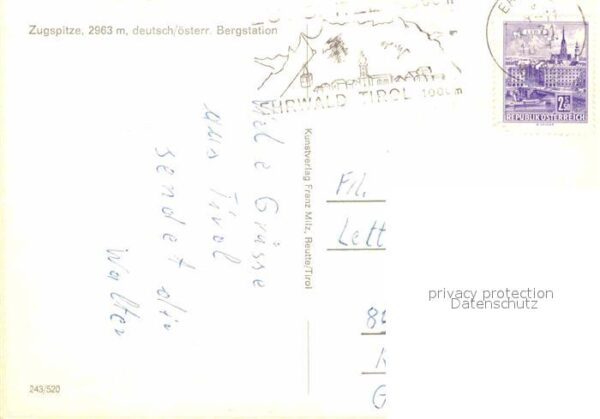 Zugspitze, 2963 m, deutsch/österr. Bergstation
EHRWALD TIROL 1000 m
2.50
REPUBLIK ÖSTERREICH
Viele Grüsse
aus Tirol
sendet dir
Walter
Kunstverlag Franz Milz, Reutte/Tirol
Frl.
Lett
privacy protection
Datenschutz
243/520